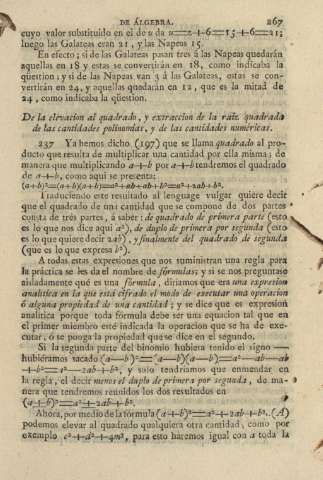 DE ÁLGEBRA. 267
cuyo valor substituido en el de u da u=z+6=15+6=21;
luego las Galateas eran 21, y las Napeas 15.
En efecto; si de las Galateas pasan tres á las Napeas quedarán
aquellas en 18 y estas se convertirán en 18, como indicaba la
qüestion; y si de las Napeas van 3 á las Galateas, estas se con-
vertirán en 24, y aquellas quedarán en 12, que es la mitad de
24, como indicaba la qüestion.
De la elevacion al quadrado, y extraccion de la raiz quadrada
de las cantidades polinomias, y de las cantidades numéricas.
237 Ya hemos dicho (197) que se llama quadrado al pro-
ducto que resulta de multiplicar una cantidad por ella misma; de
manera que multiplicando a+b por a+b tendremos el quadrado
de a+b, como aquí se presenta:
(a+b)²=(a+b)(a+b)=a²+ab+ab+b²=a²+2ab+b².
Traduciendo este resultado al lenguage vulgar quiere decir
que el quadrado de una cantidad que se compone de dos partes
consta de trés partes, á saber: de quadrado de primera parte (esto
es lo que nos dice aquí a²), de duplo de primera por segunda (esto
es lo que quiere decir 2ab), y finalmente del quadrado de segunda
(que es lo que expresa b²).
A todas estas expresiones que nos suministran una regla para
la práctica se les da el nombre de fórmulas; y si se nos preguntase
aisladamente qué es una fórmula, diríamos que era una expresion
analítica en la que está cifrado el modo de executar una operacion
ó alguna propiedad de una cantidad; y se dice que es expresion
analítica porque toda fórmula debe ser una equacion tal que en
el primer miembro esté indicada la operacion que se ha de exe-
cutar, ó se ponga la propiedad que se dice en el segundo.
Si la segunda parte del binomio hubiera tenido el signo —
hubiéramos sacado (a—b)²=(a—b)(a—b)=a²—ab—ab
+b²=a²—2ab+b², y solo tendríamos que enmendar en
la regla, el decir menos el duplo de primera por segunda, de ma-
nera que tendremos reunidos los dos resultados en
(a±b)²=a²±2ab+b².
Ahora, por medio de la fórmula (a+b)²=a²+2ab+b², (A)
podemos elevar al quadrado qualquiera otra cantidad, como por
exemplo c²+d²+4m², para esto haremos igual con a toda la